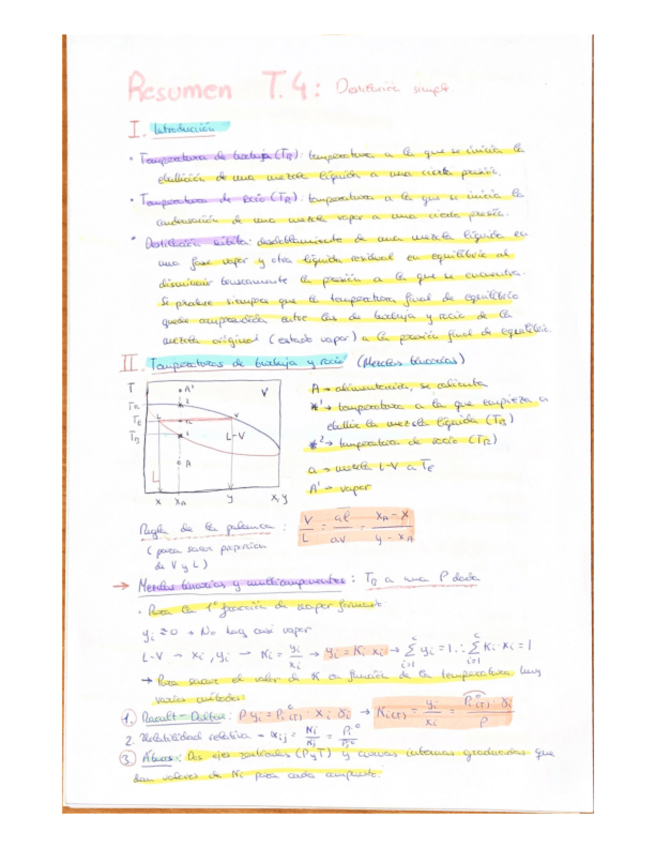 Resumen T.4: Destilación simple.
I. Introducción
• Temperatura de burbuja (TB): temperatura a la que se inicia la
ebullición de una mezcla líquida a una cierta presión.
• Temperatura de rocío (TR): temperatura a la que se inicia la
condensación de una mezcla vapor a una cierta presión.
• Destilación súbita: desdoblamiento de una mezcla líquida en
una fase vapor y otra líquida residual en equilibrio al
disminuir bruscamente la presión a la que se encuentra.
Se produce siempre que la temperatura final de equilibrio
quede comprendida entre las de burbuja y rocío de la
mezcla original (estado vapor) a la presión final de equilibrio.
II. Temperaturas de burbuja y rocío (Mezclas binarias)
T
A'
V
TR
TE
TB
L
V
L-V
A
L
x xA y x,y
A → alimentación, se calienta
*1 → temperatura a la que empieza a
ebullir la mezcla líquida (TB)
*2 → temperatura de rocío (TR)
a → mezcla L-V a TE
A' → vapor
Regla de la palanca: V/L = aL/aV = xA - x / y - xA
(para sacar proporción
de V y L)
→ Mezclas binarias y multicomponentes: TB a una P dada
• Para la 1ª fracción de vapor formado:
yi ≅ 0 → No hay casi vapor
L-V → xi, yi → Ki = yi/xi → yi = Ki xi → Σ yi = 1 ∴ Σ Ki·xi = 1
→ Para sacar el valor de K en función de la temperatura hay
varios métodos:
1. Raoult-Dalton: P yi = Pi°(T) · xi · γi → Ki(T) = yi/xi = Pi°(T) · γi / P
2. Volatilidad relativa → αij = Ki/Kj = Pi°/Pj°
3. Ábacos: Dos ejes verticales (P y T) y curvas internas graduadas que
dan valores de Ki para cada compuesto.